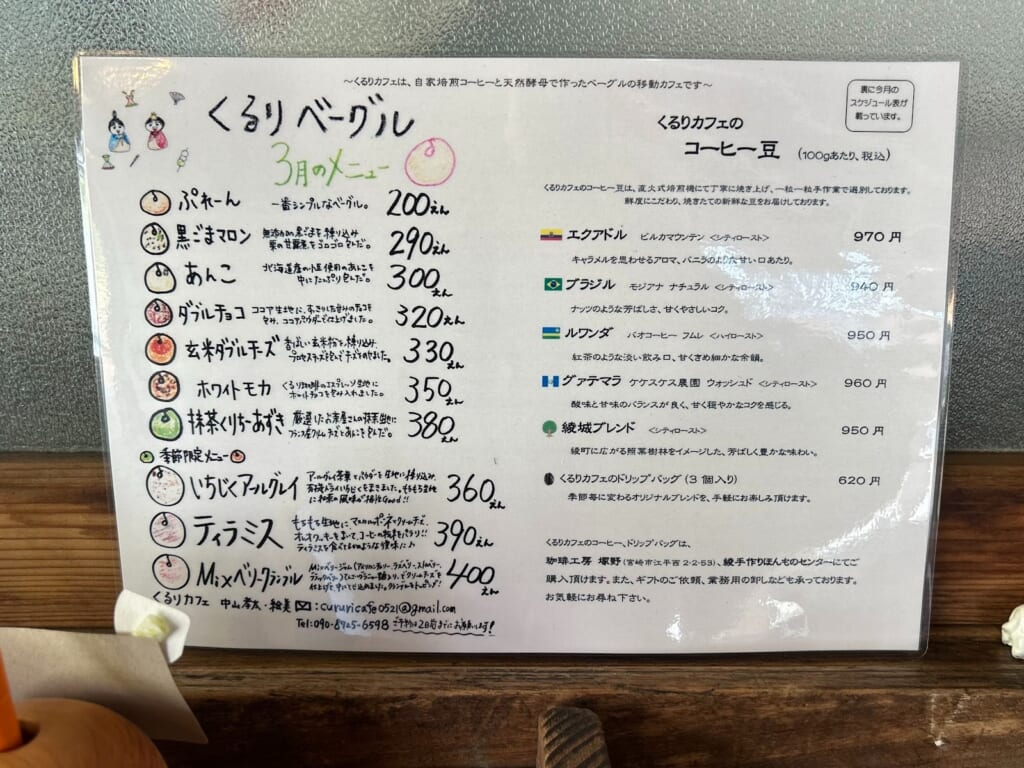 ～くるりカフェは、自家焙煎コーヒーと天然酵母で作ったベーグルの移動カフェです～
くるり ベーグル
3月のメニュー
ぷれーん 一番シンプルなベーグル。 200えん
黒ごまマロン 無添加の黒ごまを練り込み 栗の甘露煮をゴロゴロ包んだ。 290えん
あんこ 北海道産の小豆使用のあんこを 中にたっぷり包んだ。 300えん
ダブルチョコ ココア生地に、 320えん
玄米ダブルチーズ 330えん
ホワイトモカ くるり珈琲のエスプレッソ生地に ホワイトチョコを包み入れました。 350えん
抹茶くりちーあずき 厳選したお茶屋さんの抹茶生地に フランス産クリームチーズとあんこを包んだ。 380えん
季節限定メニュー
いちじくアールグレイ アールグレイ茶葉とパウダーを生地に練り込み、 360えん
ティラミス もちもち生地にマスカルポーネ ティラミスを食べてるかのような後味に♪ 390えん
Mixベリークランブル Mixベリージャム 400えん
くるりカフェ 中山孝太・絵美 ✉:cururicafe0521@gmail.com
Tel:090-8925-6598 ご予約は2日前までにお願いします!
裏に今月の
スケジュール表が
載っています。
くるりカフェの
コーヒー豆 (100gあたり、税込)
くるりカフェのコーヒー豆は、直火式焙煎機にて丁寧に焼き上げ、一粒一粒手作業で選別しております。
鮮度にこだわり、焼きたての新鮮な豆をお届けしております。
エクアドル ビルカマウンテン <シティロースト> 970円
キャラメルを思わせるアロマ、バニラのような甘い口あたり。
ブラジル モジアナ ナチュラル <シティロースト> 940円
ナッツのような芳ばしさ、甘くやさしいコク。
ルワンダ バオコーヒー フムレ <ハイロースト> 950円
紅茶のような淡い飲み口、甘くきめ細かな余韻。
グァテマラ ケケスケス農園 ウォッシュド <シティロースト> 960円
酸味と甘味のバランスが良く、甘く穏やかなコクを感じる。
綾城ブレンド <シティロースト> 950円
綾町に広がる照葉樹林をイメージした、芳ばしく豊かな味わい。
くるりカフェのドリップバッグ (3個入り) 620円
季節毎に変わるオリジナルブレンドを、手軽にお楽しみ頂けます。
くるりカフェのコーヒー、ドリップバッグは、
珈琲工房 塚野(宮崎市江平西2-2-53)、綾手作りほんものセンターにてご
購入頂けます。また、ギフトのご依頼、業務用の卸しなども承っております。
お気軽にお尋ね下さい。